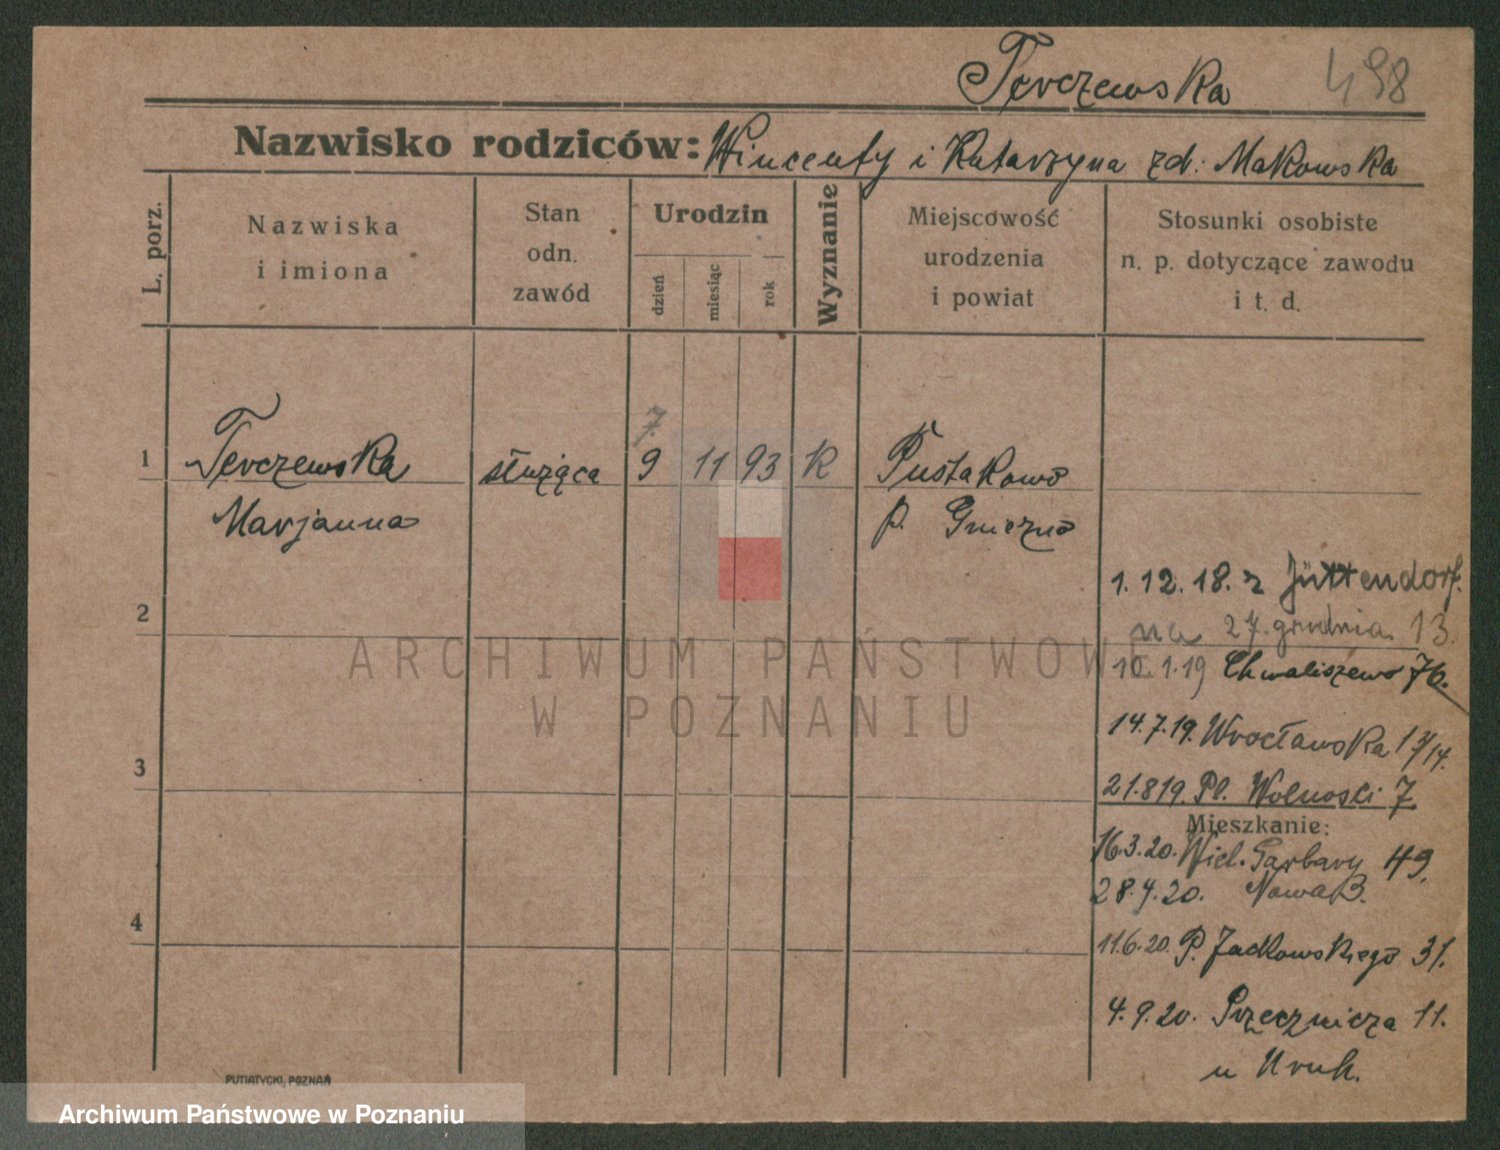 Terczewska 498
Nazwisko rodziców: Wincenty i Katarzyna zd: Makowska
L. porz.
Nazwiska
i imiona
Stan
odn.
zawód
Urodzin
dzień
miesiąc
rok
Wyznanie
Miejscowość
urodzenia
i powiat
Stosunki osobiste
n. p. dotyczące zawodu
i t. d.
7.
1 Terczewska służąca 9 11 93 k Pustakowo
Marjanna p. Gniezno
1.12.18. z Jüttendorf.
2 na 27. grudnia 13.
10.1.19 Chwaliszewo 76.
14.7.19. Wrocławska
3 21.8 19. Pl. Wolności 7.
Mieszkanie:
16.3.20. Wiel. Garbary 49.
28.4.20. Nowa
4 11.6.20. P. Jackowskiego 31.
4.9.20. Przecznicza 11.
u
PUTIATYCKI, POZNAŃ
ARCHIWUM PAŃSTWOWE
W POZNANIU
Archiwum Państwowe w Poznaniu